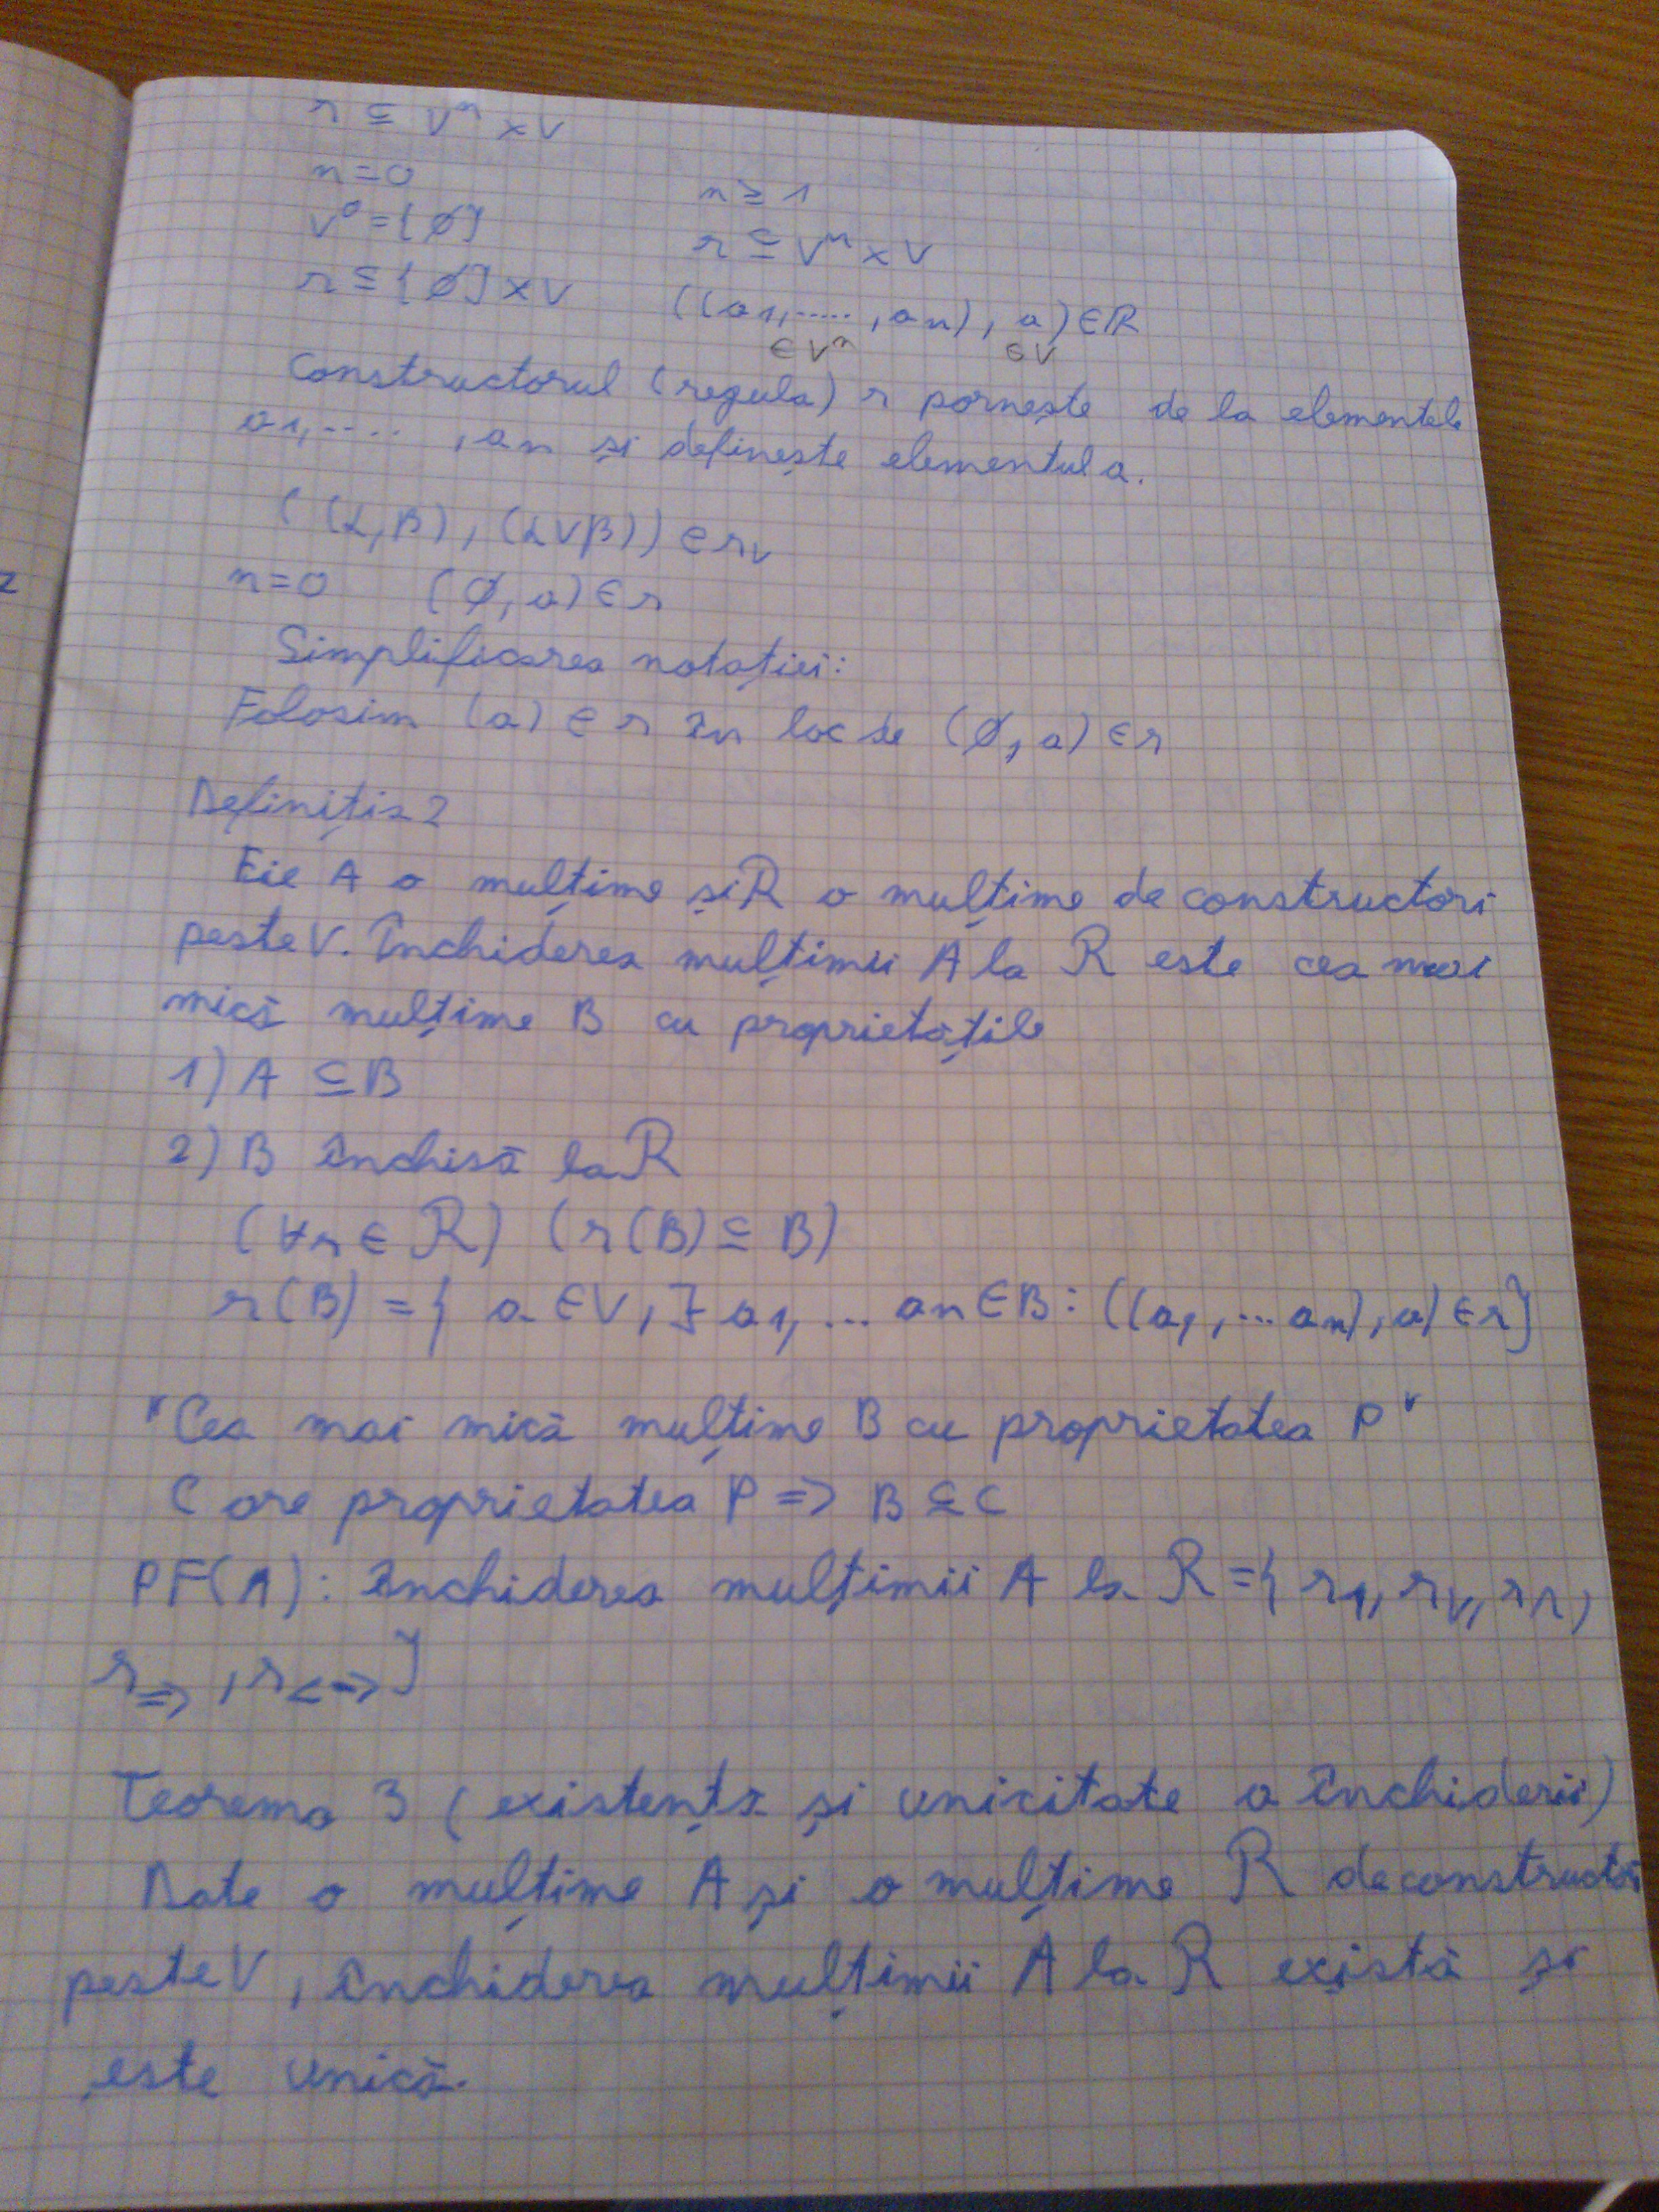 r ⊆ Vⁿ × V
n=0
n ≥ 1
V⁰ = {∅}
r ⊆ Vⁿ × V
r ⊆ {∅} × V
((a1, ....., an), a) ∈ R
∈ Vⁿ ∈ V
Constructorul (regula) r pornește de la elementele
a1, .... , an și definește elementul a.
((α, β), (α∨β)) ∈ r∨
n=0 (∅, a) ∈ r
Simplificarea notației:
Folosim (a) ∈ r în loc de (∅, a) ∈ r
Definiția 2
Fie A o mulțime și R o mulțime de constructori
peste V. Închiderea mulțimii A la R este cea mai
mică mulțime B cu proprietățile
1) A ⊆ B
2) B închisă la R
(∀r ∈ R) (r(B) ⊆ B)
r(B) = { a ∈ V, ∃ a1, ... an ∈ B : ((a1, ... an), a) ∈ r}
"Cea mai mică mulțime B cu proprietatea P"
C are proprietatea P => B ⊆ C
PF(A): închiderea mulțimii A la R = { r1, r∨, r∧,
r=>, r<=>}
Teorema 3 (existența și unicitate a închiderii)
Date o mulțime A și o mulțime R de constructori
peste V, închiderea mulțimii A la R există și
este unică.